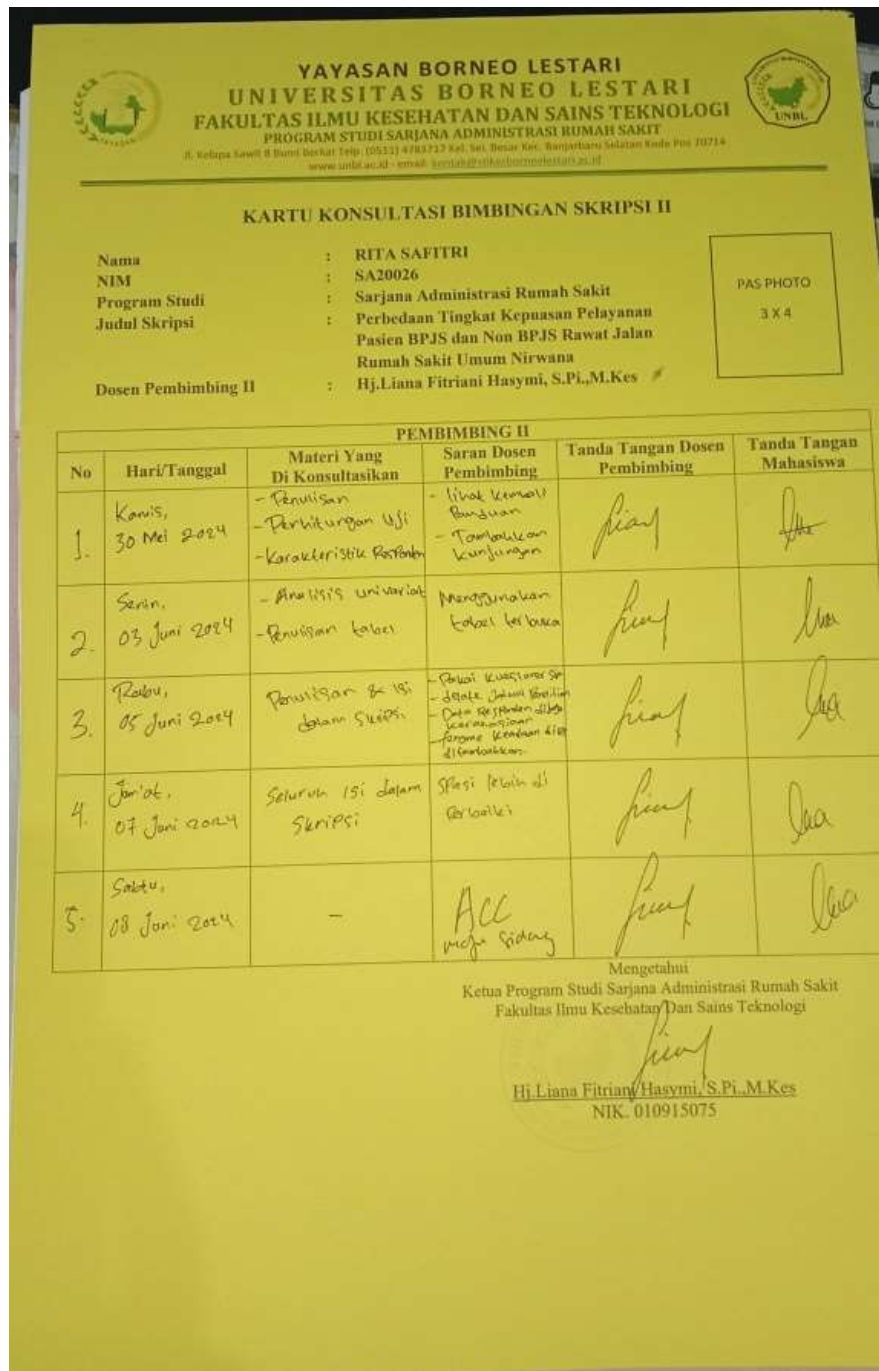 YAYASAN BORNEO LESTARI
UNIVERSITAS BORNEO LESTARI
FAKULTAS ILMU KESEHATAN DAN SAINS TEKNOLOGI
PROGRAM STUDI SARJANA ADMINISTRASI RUMAH SAKIT
Jl. Kelapa Sawit 8 Bumi Berkat Telp. (0511) 4783717 Kel. Sei. Besar Kec. Banjarbaru Selatan Kode Pos 70714
www.unbl.ac.id - email: kontak@stikesborneolestari.ac.id
YAYASAN
UNBL
KARTU KONSULTASI BIMBINGAN SKRIPSI II
Nama : RITA SAFITRI
NIM : SA20026
Program Studi : Sarjana Administrasi Rumah Sakit
Judul Skripsi : Perbedaan Tingkat Kepuasan Pelayanan
Pasien BPJS dan Non BPJS Rawat Jalan
Rumah Sakit Umum Nirwana
Dosen Pembimbing II : Hj.Liana Fitriani Hasymi, S.Pi.,M.Kes
PAS PHOTO
3 X 4
PEMBIMBING II
No
Hari/Tanggal
Materi Yang
Di Konsultasikan
Saran Dosen
Pembimbing
Tanda Tangan Dosen
Pembimbing
Tanda Tangan
Mahasiswa
1.
Kamis,
30 Mei 2024
- Penulisan
- Perhitungan Uji
- Karakteristik Responden
- lihat kembali
Panduan
- Tambahkan
kunjungan
2.
Senin,
03 Juni 2024
- Analisis univariat
- Penulisan tabel
Menggunakan
tabel terbuka
3.
Rabu,
05 Juni 2024
Penulisan & isi
dalam Skripsi
- Pakai kuesioner
- Jadwal
- Data Responden
ditambahkan.
4.
Jum'at,
07 Juni 2024
Seluruh isi dalam
Skripsi
Spasi lebih di
Perbaiki
5.
Sabtu,
08 Juni 2024
-
ACC
maju sidang
Mengetahui
Ketua Program Studi Sarjana Administrasi Rumah Sakit
Fakultas Ilmu Kesehatan Dan Sains Teknologi
Hj.Liana Fitriani Hasymi, S.Pi.,M.Kes
NIK. 010915075